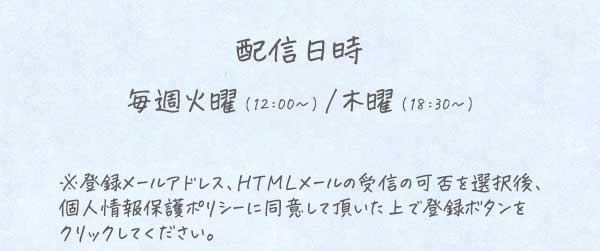 配信日時
毎週火曜（12:00〜）/木曜（18:30〜）
※登録メールアドレス、HTMLメールの受信の可否を選択後、
個人情報保護ポリシーに同意して頂いた上で登録ボタンを
クリックしてください。